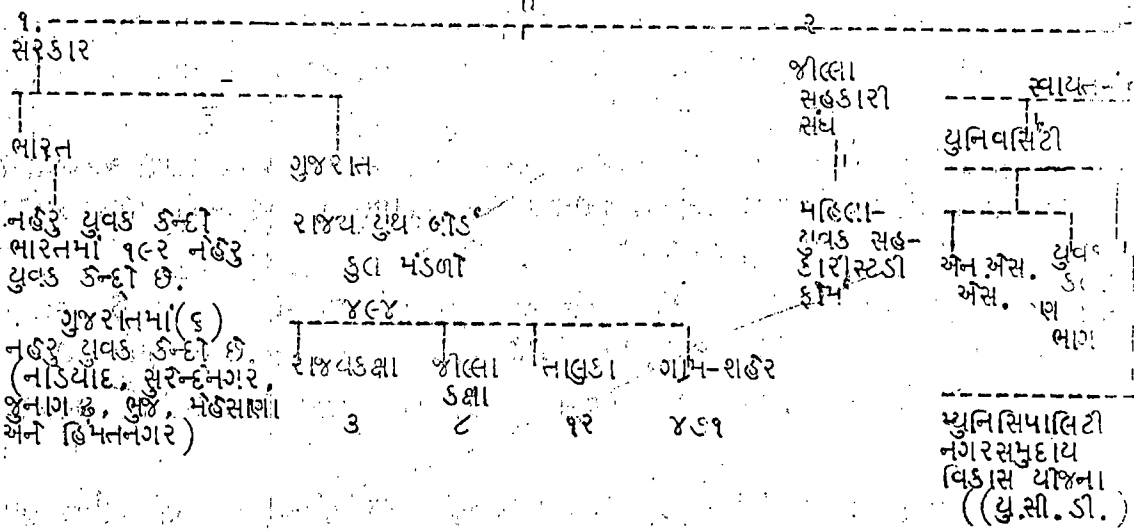 ૧.
સરકાર
ભારત
નહેરુ યુવક કેન્દ્રો
ભારતમાં ૧૯૨ નહેરુ
યુવક કેન્દ્રો છે.
ગુજરાતમાં(૬)
નહેરુ યુવક કેન્દ્રો છે.
(નડિયાદ, સુરેન્દ્રનગર,
જુનાગઢ, ભુજ, મહેસાણા
અને હિંમતનગર)
ગુજરાત
રાજય યુથ બોર્ડ
કુલ મંડળો
૪૯૪
રાજયકક્ષા
૩
જીલ્લા
કક્ષા
૮
તાલુકા
૧૨
ગામ-શહેર
૪૭૧
૨
જીલ્લા
સહકારી
સંઘ
મહિલા-
યુવક સહ-
કારીસ્ટડી
ફોર્મ
સ્વાયત-
યુનિવર્સિટી
એન.એસ.
એસ.
યુવક
ભાગ
મ્યુનિસિપાલિટી
નગરસમુદાય
વિકાસ યોજના
((યુ.સી.ડી.)